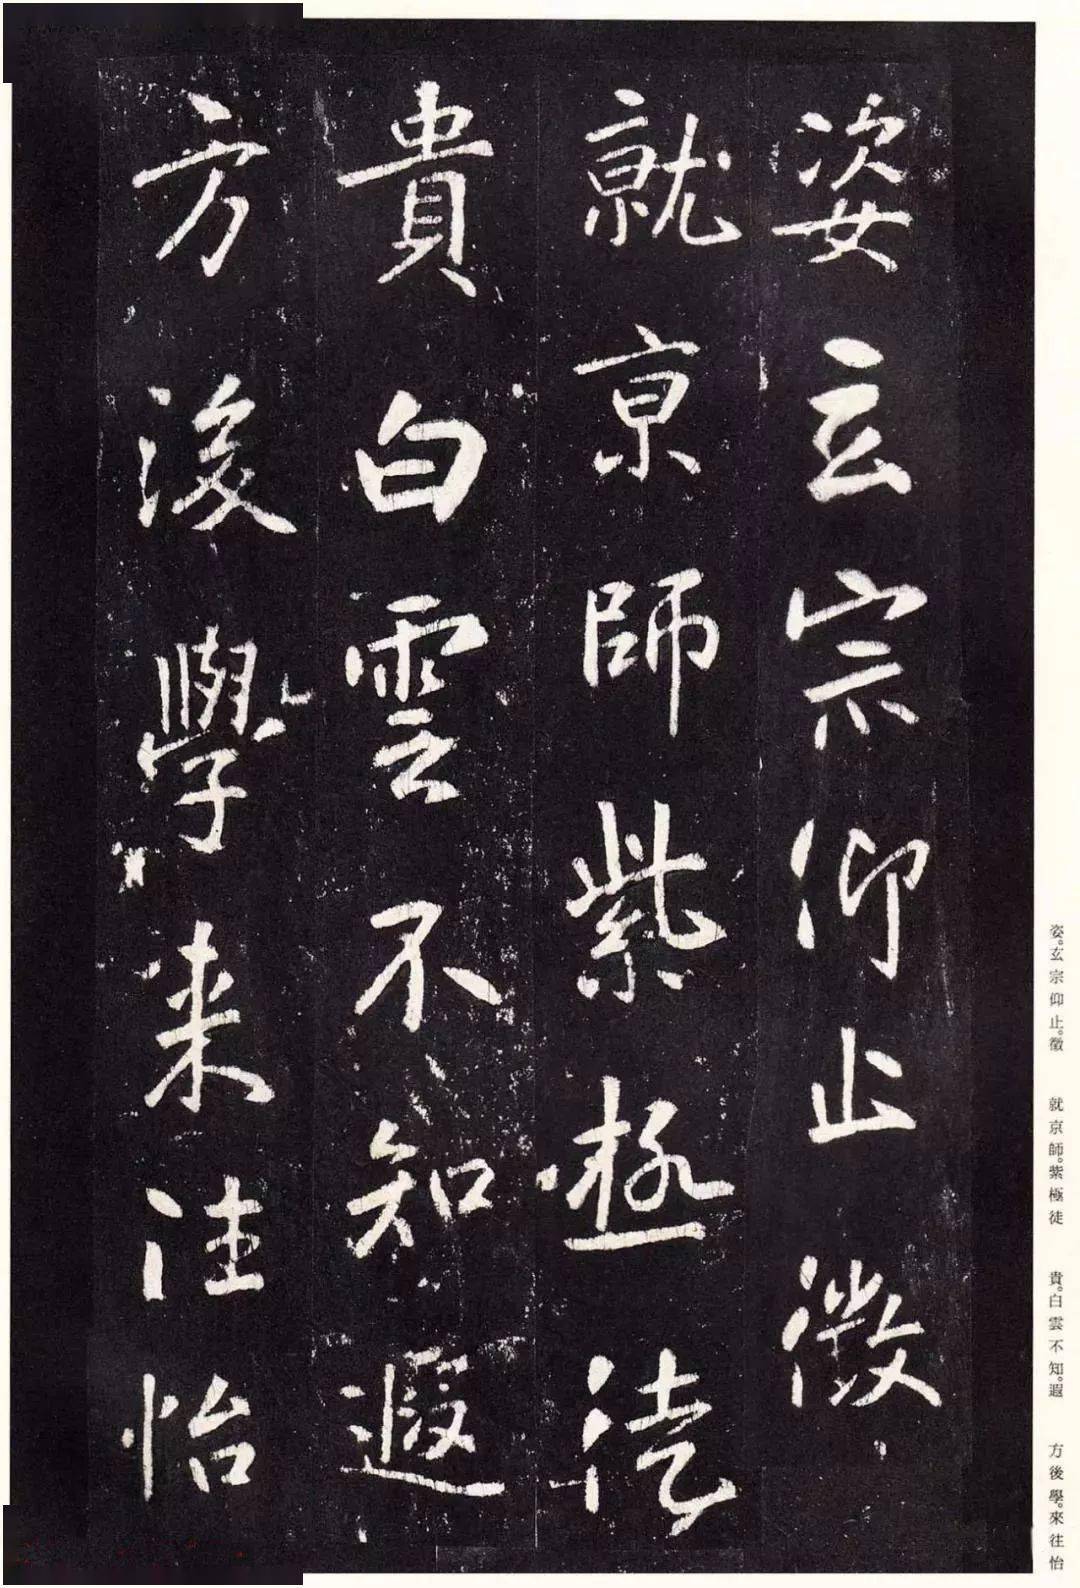 姿玄宗仰止徵
就京師紫極徒
貴白雲不知遐
方後學来往怡
姿。玄宗仰止。徵　就京師。紫極徒　貴。白雲不知。遐　方後學。來往怡